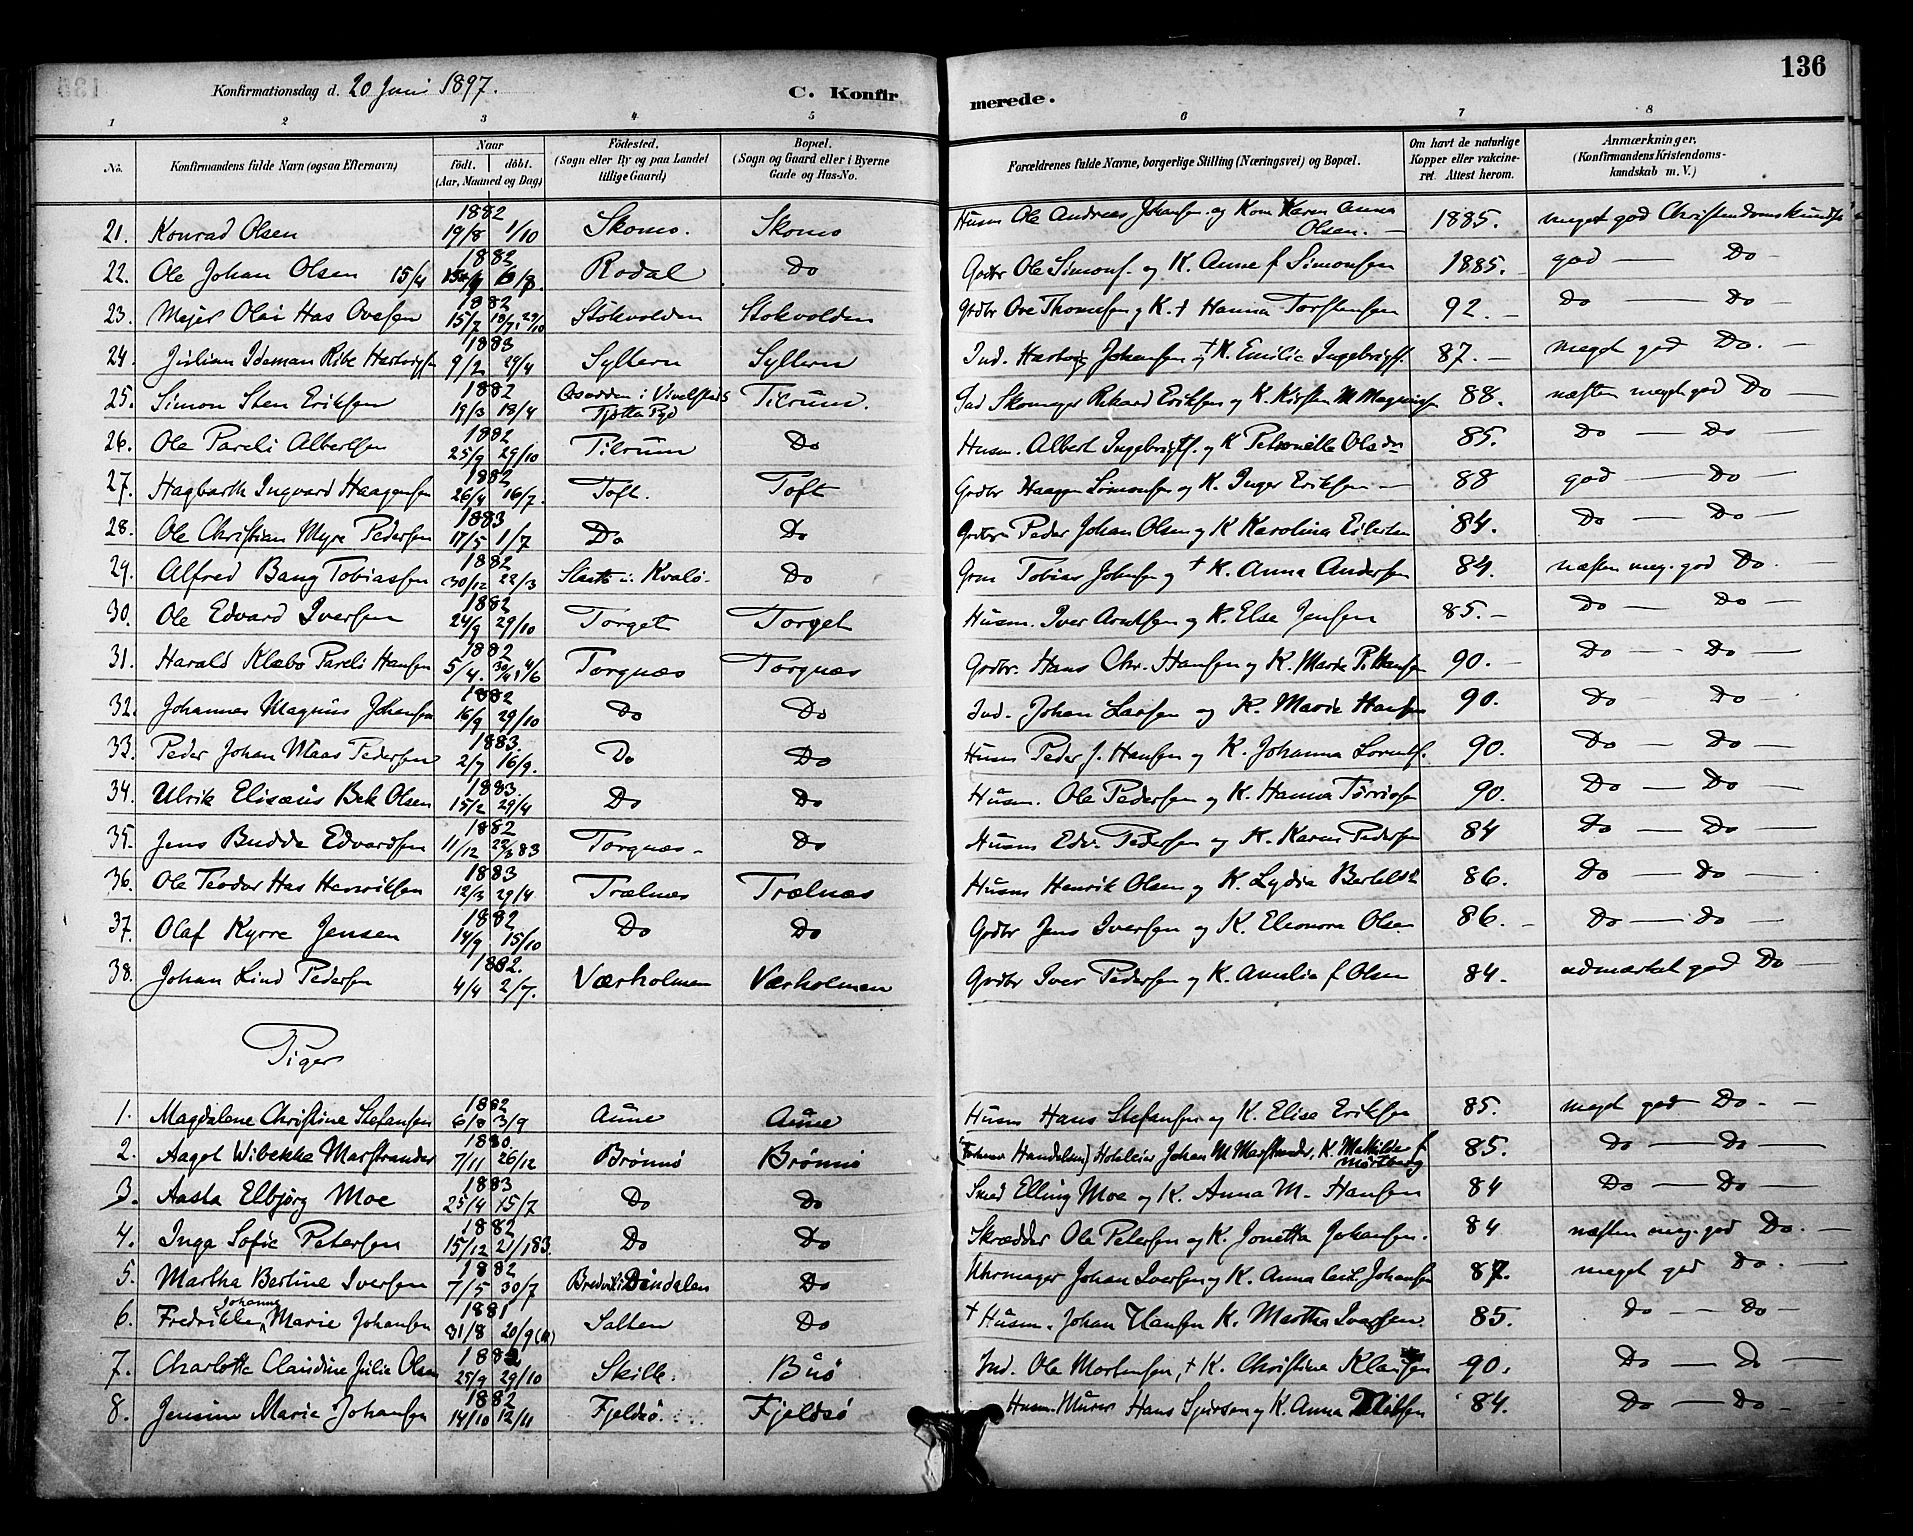 136
Konfirmationsdag d. 20 Juni 1897.
C. Konfirmerede.
1 2 3 4 5 6 7 8
No. Konfirmandens fulde Navn (ogsaa Efternavn) Naar født. døbt. (Aar, Maaned og Dag) Fødested. (Sogn eller By og paa Landet tillige Gaard) Bopæl. (Sogn og Gaard eller i Byerne Gade og Hus-No. Forældrenes fulde Navne, borgerlige Stilling (Næringsvei) og Bopæl. Om havt de naturlige Kopper eller vakcineret. Attest herom. Anmærkninger, (Konfirmandens Kristendomskundskab m. V.)
21. Konrad Olsen 1882 19/8 1/10 Skomo. Skomo Husm Ole Andreas Johansen og Kone Karen Anna Olsen. — 1885. meget god Christendomskundsk
22. Ole Johan Olsen 15/4 1882 Rodal Do Gdbr Ole Simons. og K. Anne f Simonsen 1885. god — Do
23. Mejer Olai Has Ovesen 1882 15/7 29/10 Stokvolden Stokvolden Grdbr Ove Thomesen og K. † Hanna Torstensen 92. Do — Do
24. Julian Ideman Ribe Hartvigsen 1883 9/2 29/4 Syltern Syltern Ind. Hartvig Johansen og † K. Emilie Ingebrigts. 87. — meget god Do. —
25. Simon Sten Eriksen 1882 19/3 18/4 i Tjøtta Pgd Tilrum. Ind Skomager Rikard Eriksen og K. Kirsten M Magnusen 88. næsten meget god Do —
26. Ole Pareli Albertsen 1882 25/9 29/10 Tilrum Do Husm. Albert Ingebrigts. og K Petronelle Olsdr 85. Do — Do —
27. Hagbarth Ingvard Haagensen 1882 26/4 16/7. Toft. Toft Grdbr Haagen Simonsen og K. Inger Eriksen — 88 god — Do
28. Ole Christian Myre Pedersen 1883 17/5 1/7 Do Do Grdbr Peder Johan Olsen og K Karolina Eilertsen 84. Do — Do —
29. Alfred Bang Tobiassen 1882 30/12 22/3 i Kvalø. Do Grm Tobias Johnsen og † K. Anna Andersen 84. næsten meg. god Do. —
30. Ole Edvard Iversen 1882 24/9 29/10 Torget Torget Husm. Iver Arntsen og K. Else Jensen 85. — Do — Do —
31. Harald Klæbo Pareli Hansen 1882 5/4. 4/6 Torgnæs Torgnæs Grdbr. Hans Chr. Hansen og K. Marie P. Hansen 90. — Do — Do —
32. Johannes Magnus Johansen 1882 16/9 29/10 Do Do Ind. Johan Larsen og K. Marie Hansen 90. Do — Do
33. Peder Johan Maas Pedersen 1883. 2/7 16/9. Do Do Husm Peder J. Hansen og K. Johanna Lorents. 90. Do — Do —
34. Ulrik Elisæus Bek Olsen 1883 15/2 29/4 Do Do Husm. Ole Pedersen og K. Hanna Torrisen 90. Do — Do —
35. Jens Budde Edvardsen 1882 11/12 22/3 83 Torgnæs. Do Husm Edv. Pedersen og K. Karen Pedersen 84 Do — Do —
36. Ole Teodor Has Henriksen 1883 12/3 29/4 Trælnæs Trælnæs Husm Henrik Olsen og K. Lydia Bertels. 86. Do — Do —
37. Olaf Kyrre Jensen 1882 14/9 15/10 Do Do Grdbr Jens Iversen og K. Eleonora Olsen 86. — Do — Do —
38. Johan Lind Pedersen 1882. 4/4 2/7. Værholmen Værholmen Grdbr Iver Pedersen og K. Amalia f Olsen 84. udmærket god Do —
Piger
1. Magdalene Christine Stefansen 1882 6/8 3/9 Aune Aune Husm Hans Stefansen og K. Elise Eriksen 85. meget god Do. —
2. Aagot Wibekke Marstrander 1880 7/11 26/12 Brønnø Brønnø (Forhenv Handelsm) Hoteleier Johan M Marstrander, K. Mathilde f Mørtberg 85. Do — Do —
3. Aasta Elbjørg Moe 1883 25/4 15/7 Do Do Smed Elling Moe og K. Anna M. Hansen 84 Do — Do —
4. Inga Sofie Petersen 1882 15/12 21/1 83 Do Do Skrædder Ole Petersen og K. Jonetta Johansen. 84 næsten meg. god Do. —
5. Martha Berline Iversen 1882 7/5 30/7 Bredvik i Bindalen Do Uhrmager Johan Iversen og K. Anna Johansen 87. meget god Do. —
6. Fredrikke Johanna Marie Johansen 1881 31/8 20/9 Salten Do † Husm. Johan Hansen K. Martha Iversen. 85. Do — Do —
7. Charlotte Claudine Julie Olsen 1882 25/9 29/10 Skille. Buø Ind. Ole Mortensen, † K. Christine Klausen 90. Do — Do —
8. Jensine Marie Johansen 1882 14/10 12/11 Fjeldsø. Fjeldsø Husm. Murer Hans Sjursen og K. Anna Nilsen 84. Do — Do —